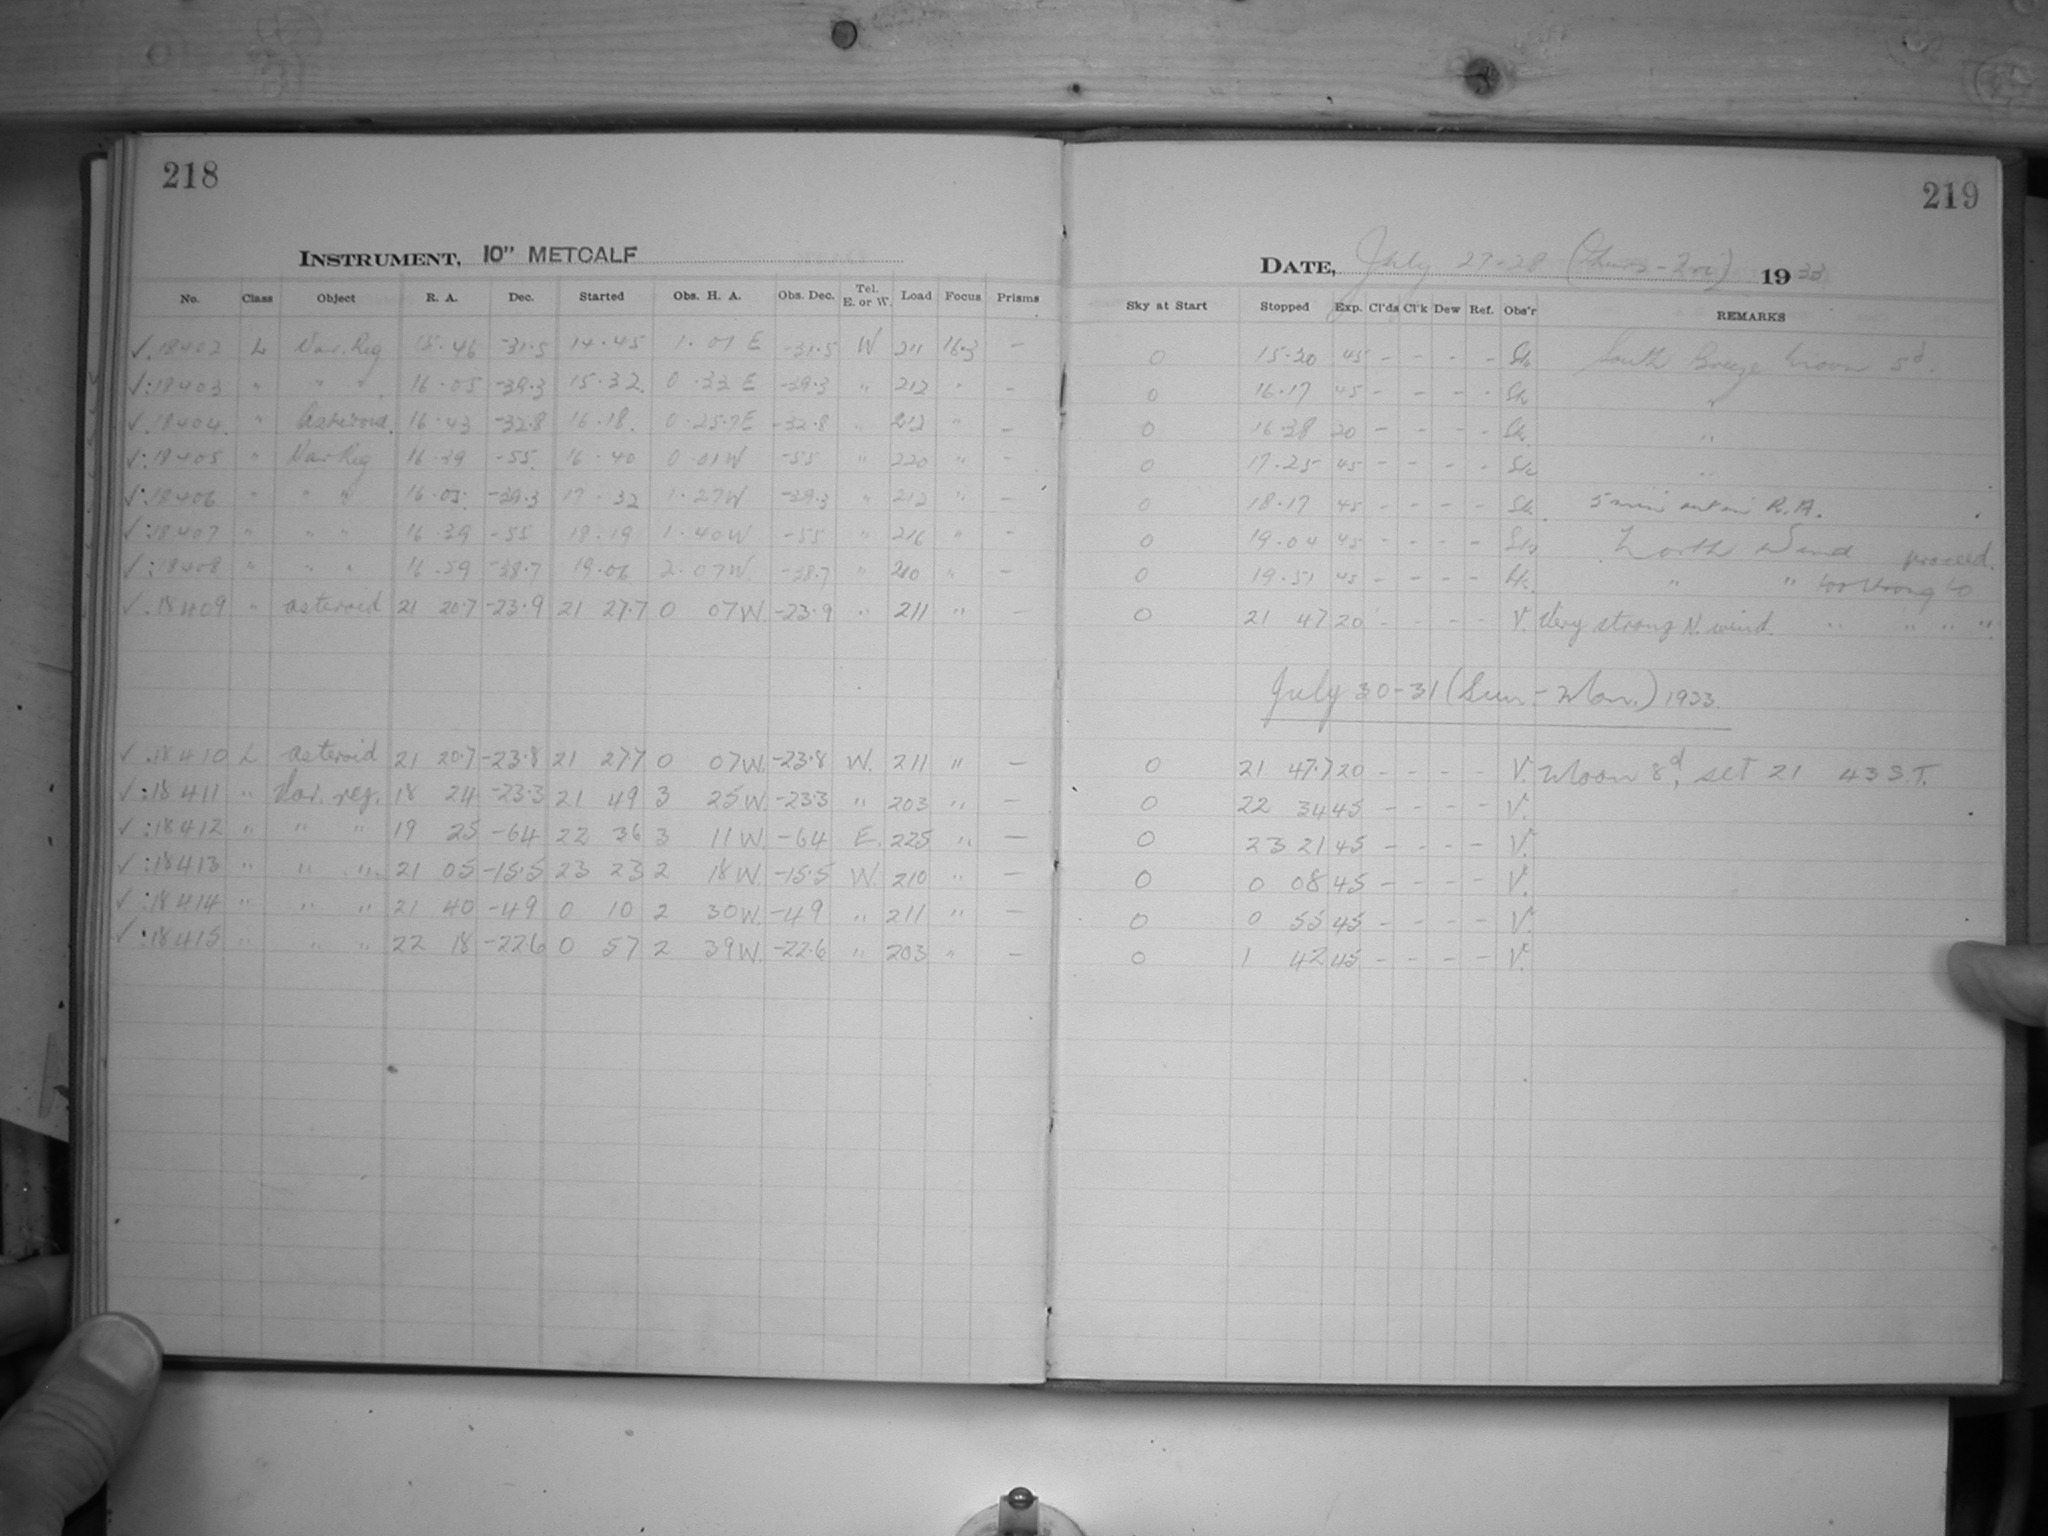 218
INSTRUMENT, 10" METCALF
No. Class Object R. A. Dec. Started Obs. H. A. Obs. Dec. Tel. E. or W. Load Focus Prisms
✓.18402 L Var. Reg 15.46 -31.5 14.45 1.01 E -31.5 W 211 16.3 —
✓:18403 " " " 16.05 -39.3 15.32 0.33 E -39.3 " 212 " —
✓.18404 " Asteroid 16.43 -32.8 16.18 0.25.7 E -32.8 " 212 " —
✓:18405 " Var Reg 16.39 -55 16.40 0.01 W -55 " 220 " —
✓:18406 " " " 16.05 -39.3 17.32 1.27 W -39.3 " 212 " —
✓:18407 " " " 16.39 -55 18.19 1.40 W -55 " 216 " —
✓:18408 " " " 16.59 -38.7 19.06 2.07 W. -38.7 " 210 " —
✓.18409 " asteroid 21 20.7 -23.9 21 27.7 0 07 W. -23.9 " 211 " —
✓.18410 L asteroid 21 20.7 -23.8 21 27.7 0 07 W. -23.8 W. 211 " —
✓:18411 " Var. reg. 18 24 -23.3 21 49 3 25 W. -23.3 " 203 " —
✓:18412 " " " 19 25 -64 22 36 3 11 W. -64 E. 225 " —
✓:18413 " " " 21 05 -15.5 23 23 2 18 W. -15.5 W. 210 " —
✓:18414 " " " 21 40 -49 0 10 2 30 W. -49 " 211 " —
✓:18415 " " " 22 18 -22.6 0 57 2 39 W. -22.6 " 203 " —
219
DATE, July 27-28 (Thurs-Fri) 1933
Sky at Start Stopped Exp. Cl'ds Cl'k Dew Ref. Obs'r REMARKS
0 15.30 45 - - - - South Breeze Moon 5d.
0 16.17 45 - - - - "
0 16.38 20 - - - - "
0 17.25 45 - - - - "
0 18.17 45 - - - - 5 min out in R.A.
0 19.04 45 - - - - North Wind proceed.
0 19.51 45 - - - - " " too strong to
0 21 47 20 - - - - V. Very strong N. wind. " " " "
July 30-31 (Sun.-Mon.) 1933.
0 21 47.7 20 - - - - V. Moon 8d, set 21 43 S.T.
0 22 34 45 - - - - V.
0 23 21 45 - - - - V.
0 0 08 45 - - - - V.
0 0 55 45 - - - - V.
0 1 42 45 - - - - V.